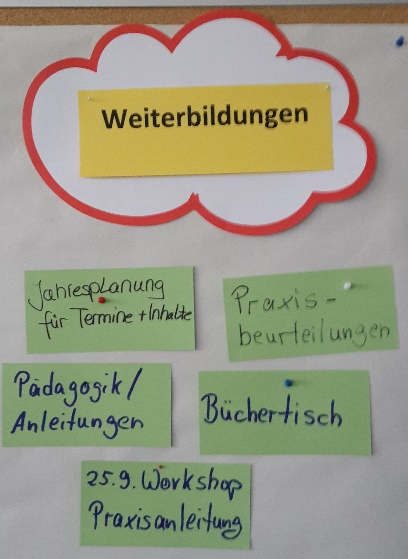 Weiterbildungen
Jahresplanung
für Termine + Inhalte
Praxis-
beurteilungen
Pädagogik/
Anleitungen
Büchertisch
25.9. Workshop
Praxisanleitung